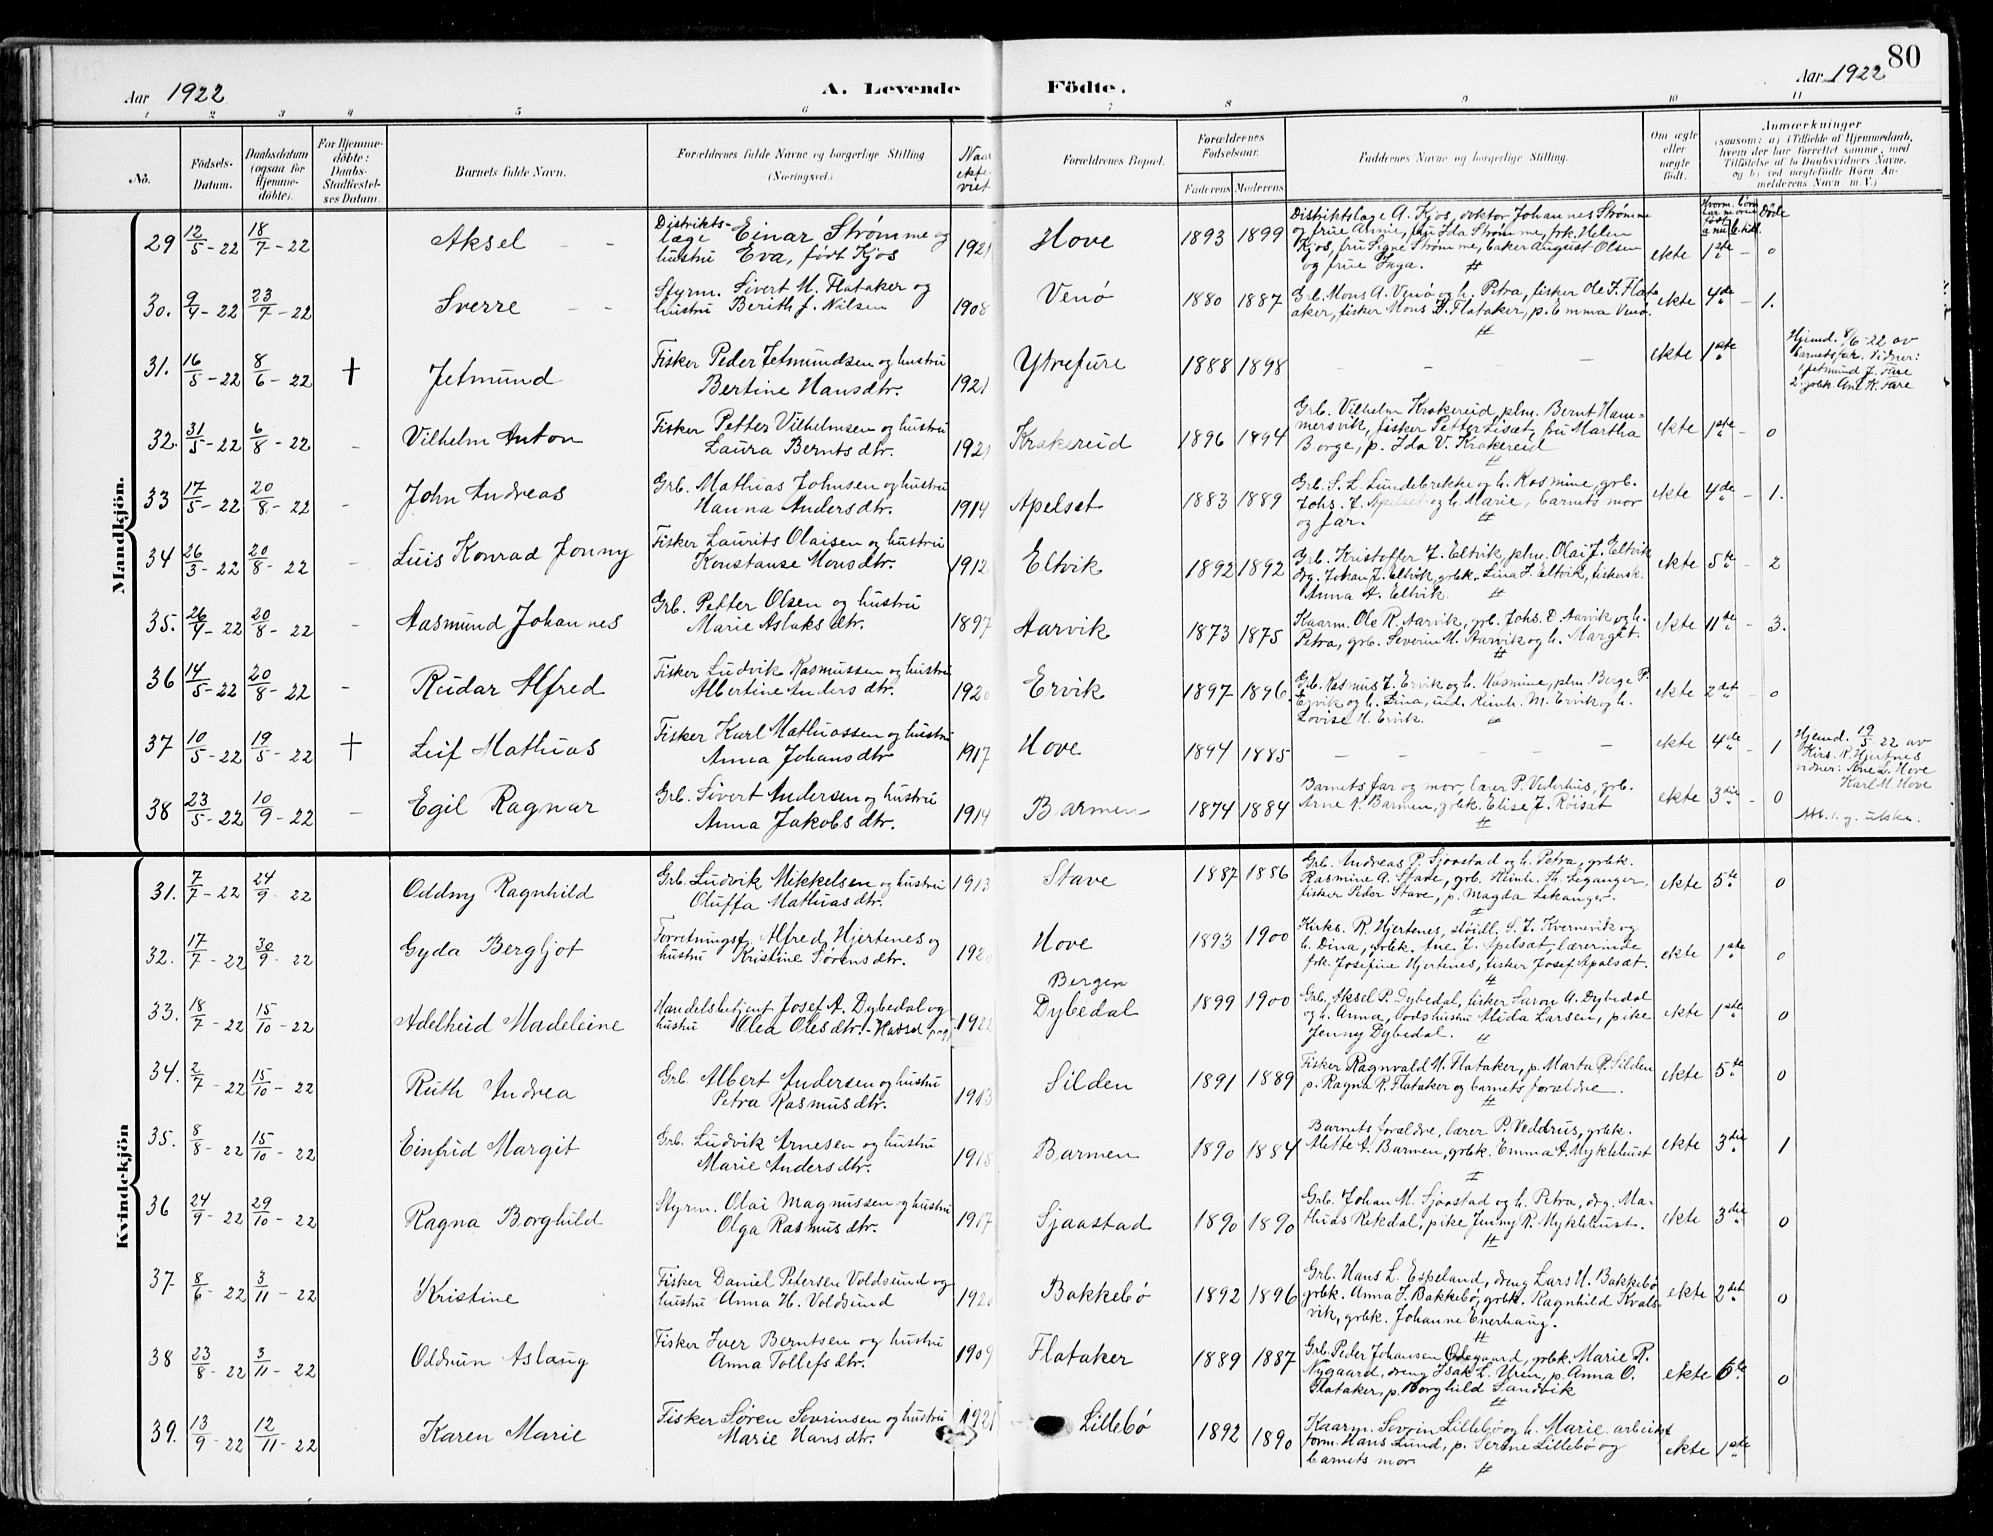 80
Aar 1922 A. Levende Födte. Aar 1922
1 2 3 4 5 6 7 8 9 10 11
No. Födsels-Datum. Daabsdatum (ogsaa for Hjemmedöbte). For Hjemmedöbte: Daabs-Stadfæstelses Datum. Barnets fulde Navn. Forældrenes fulde Navne og borgerlige Stilling (Næringsvei.) Naar ekte viet Forældrenes Bopæl. Forældrenes Födselsaar. Faderens Moderens Faddernes Navne og borgerlige Stilling. Om ægte eller uægte födt. Anmærkninger
(saasom: a) i Tilfælde af Hjemmedaab, hvem der har forrettet samme, med Tilföielse af to Daabsvidners Navne. og b) ved uægtefödte Börn Anmelderens Navn m. V.)
Mandkjön.
29 12/5-22 18/7-22 Aksel - - Distriktslæge Einar Strømme og hustru Eva, født Kjos 1921 Hove 1893 1899 Distriktslæge A. Kjos, doktor Johannes Strømme
og frue Anne, fru Ida Strømme, frk. Helen
Kjos, fru Signe Strømme, baker August Olsen
og frue Inga. ekte 1ste - 0
30. 9/4-22 23/7-22 Sverre - - Styrm. Sivert M. Flataker og hustru Berith f. Nilsen 1908 Venø 1880 1887 Grb. Mons A. Venø og h. Petra, fisker Ole J. Flataaker, fisker Mons D. Flataker, p. Emma Venø. ekte 4de - 1.
31. 16/5-22 8/6-22 + Jetmund Fisker Peder Jetmundsen og hustru Bertine Hansdtr. 1921 Ytrefure 1888 1898 - - - - ekte 1ste Hjemd. 8/6-22 av
barnets far. Vidner:
1. Jetmund J. Fure
2. grbk. Ane K. Fure
32. 31/5-22 6/8-22 - Vilhelm Anton Fisker Petter Vilhelmsen og hustru Laura Berntsdtr. 1921 Krakereid 1896 1894 Grb. Vilhelm Krakereid, plm. Bernt Hammersvik, fisker Petter Lisæt, fru Martha
Borge, p. Ida V. Krakereid ekte 1ste - 0
33 17/5-22 20/8-22 - John Andreas Grb. Mathias Johnsen og hustru Hanna Andersdtr. 1914 Apelset 1883 1889 Grb. S. L. Lundebrekke og h. Rasmine, grb.
Johs. J. Apelset og h. Marie, barnets mor
og far. ekte 4de - 1.
34 26/3-22 20/8-22 - Luis Konrad Jonny Fisker Laurits Olaisen og hustru Konstanse Monsdtr. 1912 Eltvik 1892 1892 Grb. Kristoffer J. Eltvik, plm. Olai J. Eltvik
drg. Johan J. Eltvik, grbk. Lina J. Eltvik, fiskersk.
Anna A. Eltvik. ekte 5te - 2
35. 26/4-22 20/8-22 - Aasmund Johannes Grb. Petter Olsen og hustru Marie Aslaksdtr. 1897 Aarvik 1873 1875 Kaarm. Ole R. Aarvik, grb. Johs. D. Aarvik og h.
Petra, grb. Severin M. Aarvik og h. Margit. ekte 11te - 3.
36 14/5-22 20/8-22 - Reidar Alfred Fisker Ludvik Rasmussen og hustru Albertine Andersdtr. 1920 Ervik 1897 1896 Grb. Rasmus J. Ervik og h. Rasmine, plm. Berge P.
Ervik og h. Lina, ind. Reinh. M. Ervik og h.
Lovise H. Ervik. ekte 2det - 0
37 10/5-22 19/5-22 + Leif Mathias Fisker Karl Mathiassen og hustru Anna Johansdtr 1917 Hove 1894 1885 - - - - - ekte 4de - 1 Hjemd. 19/5-22 av
Kirs. R. Hjertnes
vidner: Ane L. Hove
Karl M. Hove
38 23/5-22 10/9-22 - Egil Ragnar Grb. Sivert Andersen og hustru Anna Jakobsdtr. 1914 Barmen 1874 1884 Barnets far og mor, lærer P. Vederhus, grb.
Arne A. Barmen, grbk. Elise J. Röiset ekte 3die - 0
Kvindekjön
31. 7/7-22 24/9-22 Oddny Ragnhild Grb. Ludvik Mikkelsen og hustru Oluffa Mathiasdtr. 1913 Stave 1887 1886 Grb. Andreas P. Sjaastad og h. Petra, grbk.
Rasmine A. Stave, grb. Reinh. Th. Leganger,
fisker Peder Stave, p. Magda Lekanger. ekte 5te 0
32. 17/7-22 30/9-22 Gyda Bergljot Forretningsf. Alfred Hjertenes og hustru Kristine Sørensdtr. 1920 Hove 1893 1900 Kirks. R. Hjertenes, støidl. S. J. Kvernevik og
h. Dina, grbk. Ane J. Apelsæt, lærerinde
frk. Josefine Hjertenes, fisker Josef Apalsæt. ekte 1ste 0
33. 18/7-22 15/10-22 Adelheid Madeleine Handelsbetjent Josef A. Dybedal og hustru Olea Olesdtr. 1922 Bergen
Dybedal 1899 1900 Grb. Aksel P. Dybedal, fisker Saron A. Dybedal
og h. Anna, Bodshustru Alida Larsen, pike
Jenny Dybedal. ekte 1ste 0
34. 2/7-22 15/10-22 Ruth Andrea Grb. Albert Andersen og hustru Petra Rasmusdtr. 1913 Silden 1891 1889 Fisker Ragnvald M. Flataker, p. Marta R. Silden
p. Ragna R. Flataker og barnets forældre. ekte 5te 0
35. 8/8-22 15/10-22 Einfrid Margit Grb. Ludvik Arnesen og hustru Marie Andersdtr. 1915 Barmen 1890 1884 Barnets forældre, lærer P. Veddrus, grbk.
Mette A. Barmen, grbk. Emma A. Myklebust ekte 3die 1
36 24/9-22 29/10-22 Ragna Borghild Styrm. Olai Magnussen og hustru Olga Rasmusdtr. 1917 Sjaastad 1890 1890 Grb. Johan M. Sjaastad og h. Petra, drg. Mathias Rekdal, pike Jenny R. Myklebust. ekte 3die 0
37 8/6-22 3/11-22 Kristine Fisker Daniel Petersen Voldsund og hustru Anna H. Voldsund 1920 Bakkebø 1892 1896 Grb. Hans L. Espeland, dreng Lars H. Bakkebø
grbk. Anna J. Bakkebø, grbk. Ragnhild Kvalsvik, grbk. Johanne Enerhaug. ekte 2det 0
38 23/8-22 3/11-22 Oddrun Aslaug Fisker Iver Berntsen og hustru Anna Tollefsdtr. 1909 Flataker 1889 1887 Grb. Peder Johansen Ødegaard, grbk. Marie R.
Nygaard, dreng Isak L. Uren, p. Anna O.
Flataker, p. Borghild Sandvik ekte 6te 0
39. 13/9-22 12/11-22 Karen Marie Fisker Søren Sevrinsen og hustru Marie Hansdtr. 1921 Lillebø 1892 1890 Kaarm. Sevrin Lillebø og h. Marie, arbeidsform. Hans Lund, p. Serine Lillebø og
barnets mor. ekte 1ste